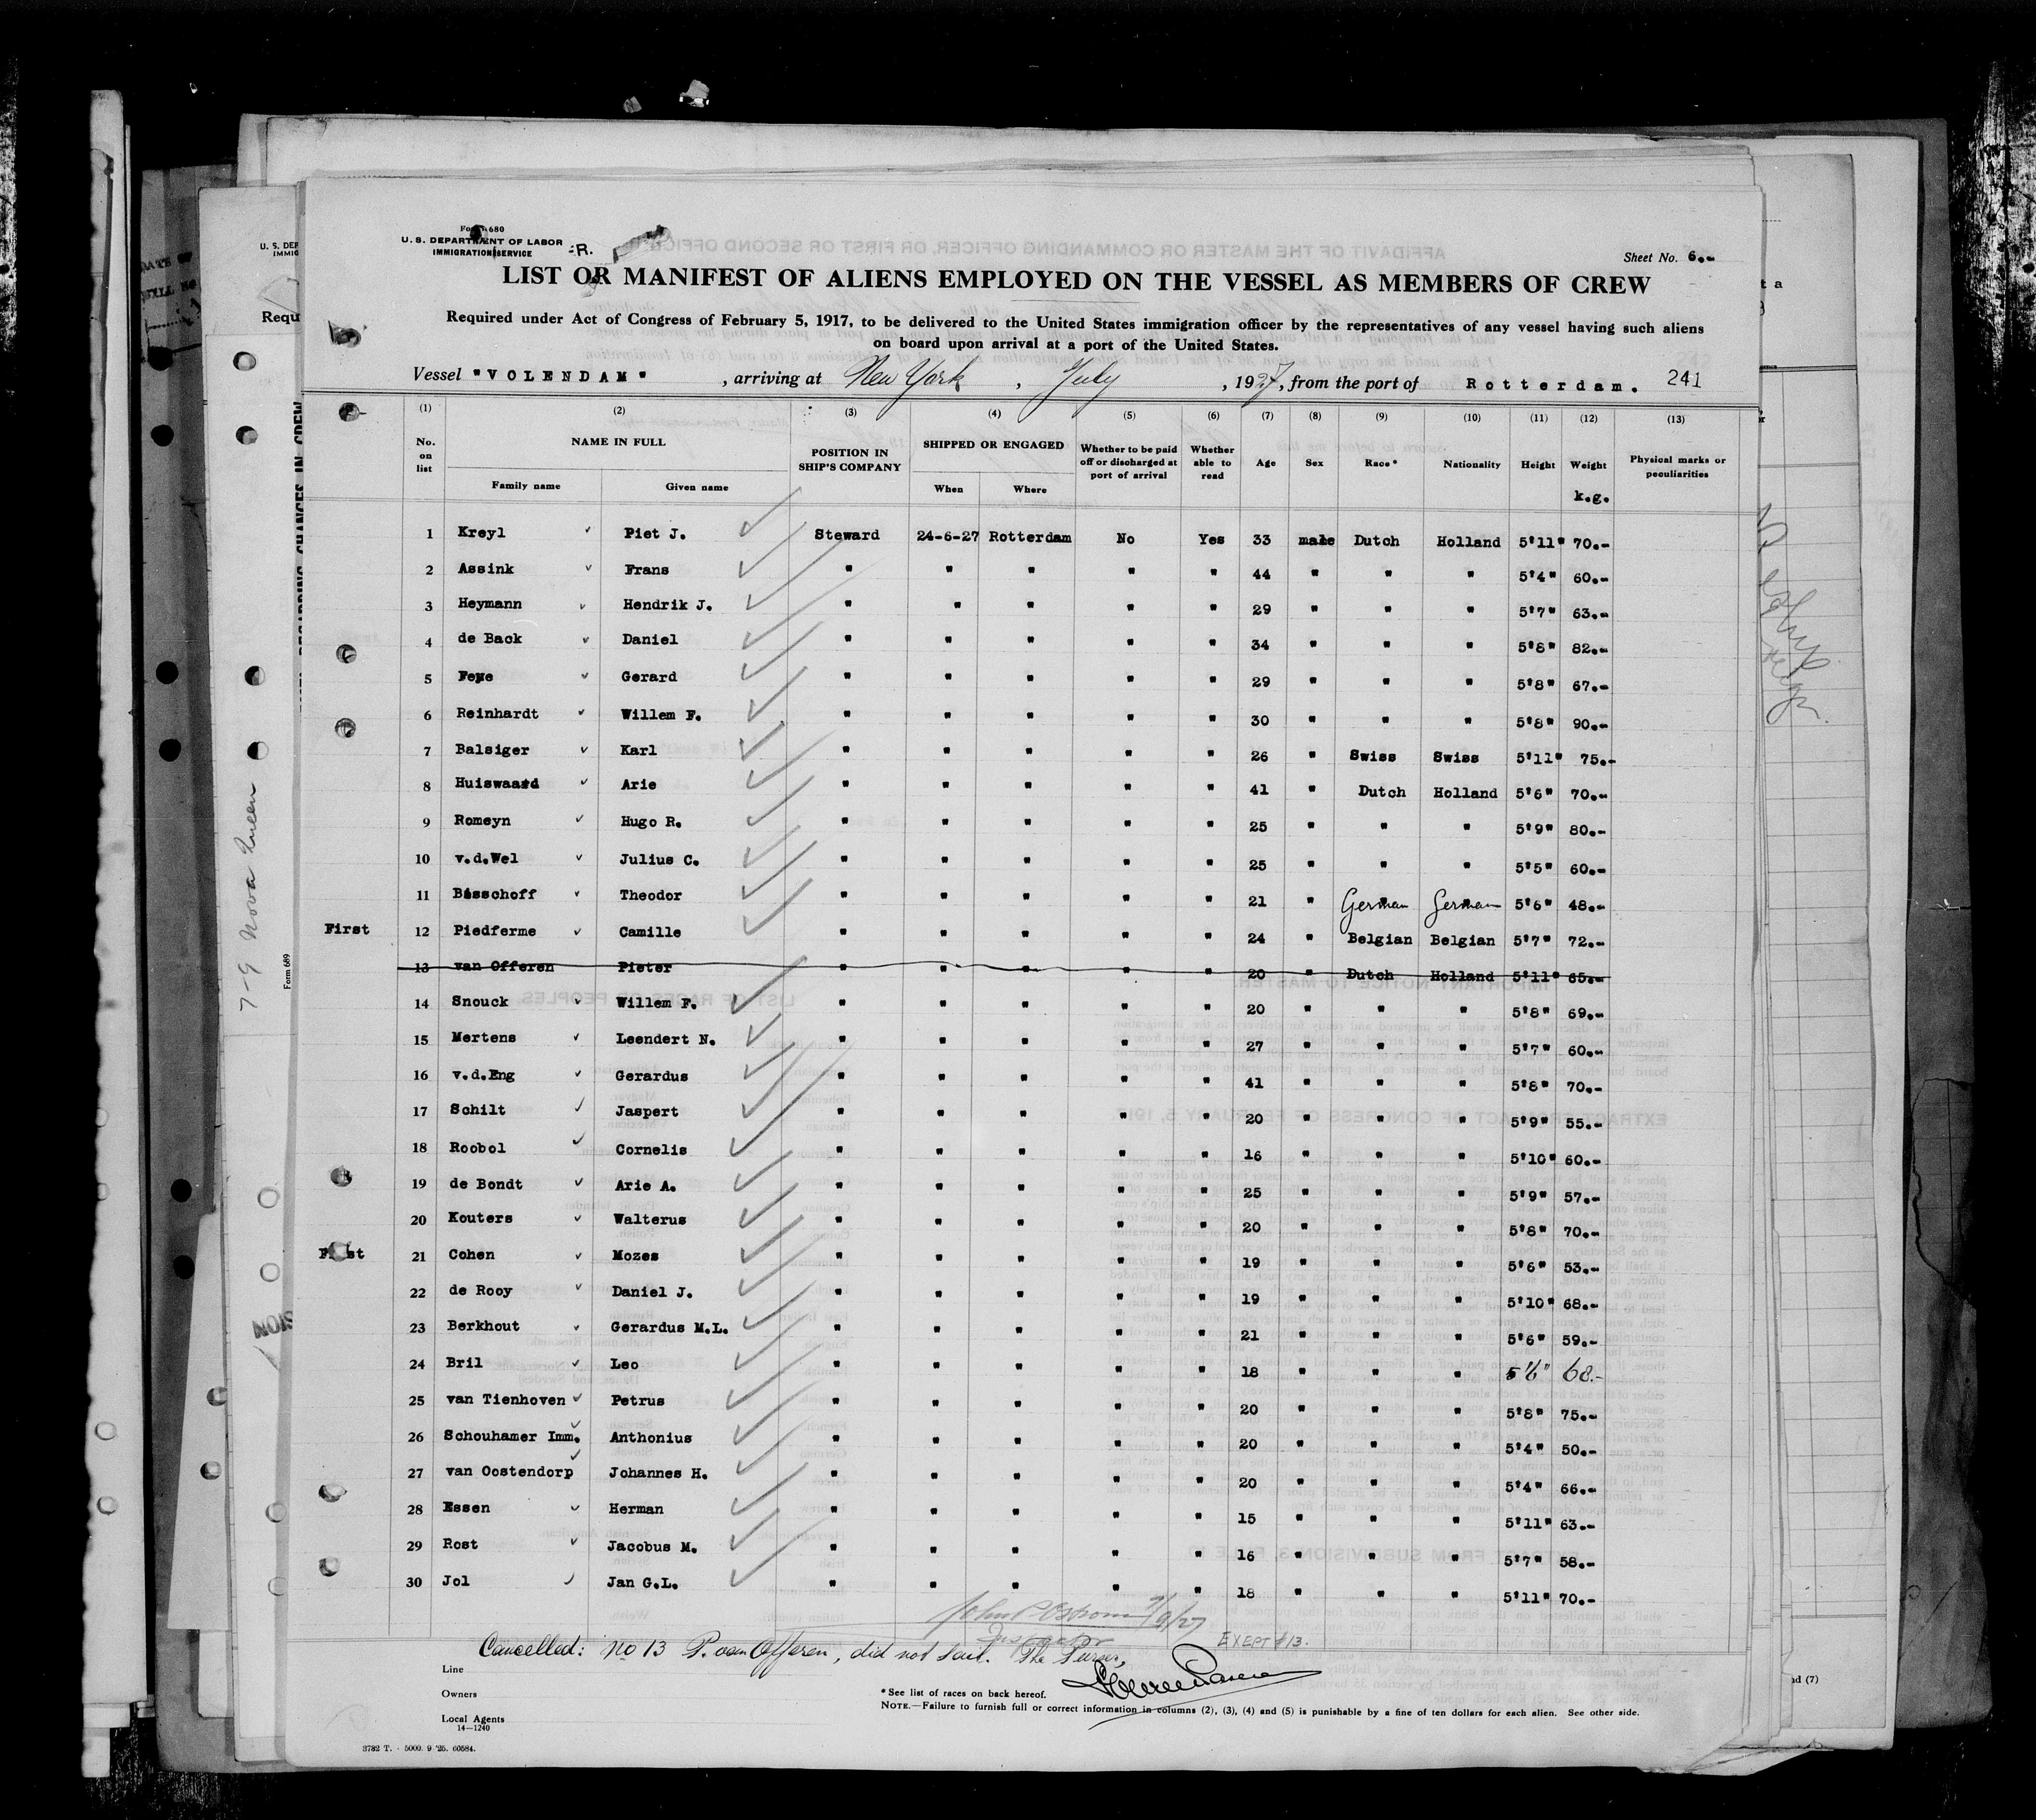 Form 680
U. S. DEPARTMENT OF LABOR
IMMIGRATION SERVICE
-R.
Sheet No. 6.-
LIST OR MANIFEST OF ALIENS EMPLOYED ON THE VESSEL AS MEMBERS OF CREW
Required under Act of Congress of February 5, 1917, to be delivered to the United States immigration officer by the representatives of any vessel having such aliens
on board upon arrival at a port of the United States.
Vessel "VOLENDAM", arriving at New York, July, 1927, from the port of Rotterdam. 241
(1) (2) (3) (4) (5) (6) (7) (8) (9) (10) (11) (12) (13)
No. on list NAME IN FULL Family name Given name POSITION IN SHIP'S COMPANY SHIPPED OR ENGAGED When Where Whether to be paid off or discharged at port of arrival Whether able to read Age Sex Race* Nationality Height Weight k.g. Physical marks or peculiarities
1 Kreyl Piet J. Steward 24-6-27 Rotterdam No Yes 33 male Dutch Holland 5'11" 70.-
2 Assink Frans " " " " " 44 " " " 5'4" 60.-
3 Heymann Hendrik J. " " " " " 29 " " " 5'7" 63.-
4 de Back Daniel " " " " " 34 " " " 5'8" 82.-
5 Gerard " " " " " 29 " " " 5'8" 67.-
6 Reinhardt Willem F. " " " " " 30 " " " 5'8" 90.-
7 Balsiger Karl " " " " " 26 " Swiss Swiss 5'11" 75.-
8 Huiswaard Arie " " " " " 41 " Dutch Holland 5'6" 70.-
9 Romeyn Hugo R. " " " " " 25 " " " 5'9" 80.-
10 v.d.Wel Julius C. " " " " " 25 " " " 5'5" 60.-
11 Bisschoff Theodor " " " " " 21 " German German 5'6" 48.-
First 12 Piedferme Camille " " " " " 24 " Belgian Belgian 5'7" 72.-
13 van Offeren Pieter " " " " " 20 " Dutch Holland 5'11" 65.-
14 Snouck Willem F. " " " " " 20 " " " 5'8" 69.-
15 Mertens Leendert N. " " " " " 27 " " " 5'7" 60.-
16 v.d.Eng Gerardus " " " " " 41 " " " 5'8" 70.-
17 Schilt Jaspert " " " " " 20 " " " 5'9" 55.-
18 Roobol Cornelis " " " " " 16 " " " 5'10" 60.-
19 de Bondt Arie A. " " " " " 25 " " " 5'9" 57.-
20 Kouters Walterus " " " " " 20 " " " 5'8" 70.-
First 21 Cohen Mozes " " " " " 19 " " " 5'6" 53.-
22 de Rooy Daniel J. " " " " " 19 " " " 5'10" 68.-
23 Berkhout Gerardus M.L. " " " " " 21 " " " 5'6" 59.-
24 Bril Leo " " " " " 18 " " " 5'6" 60.-
25 van Tienhoven Petrus " " " " " 20 " " " 5'8" 75.-
26 Schouhamer Imm. Anthonius " " " " " 20 " " " 5'4" 50.-
27 van Oostendorp Johannes H. " " " " " 20 " " " 5'4" 66.-
28 Essen Herman " " " " " 15 " " " 5'11" 63.-
29 Rost Jacobus M. " " " " " 16 " " " 5'7" 58.-
30 Jol Jan G.L. " " " " " 18 " " " 5'11" 70.-
John P Ostrom 7/9/27
Inspector
EXEPT #13.
Cancelled: no 13 P. van Offeren, did not sail. The Purser,
Line
Owners
Local Agents
14—1240
* See list of races on back hereof.
NOTE.—Failure to furnish full or correct information in columns (2), (3), (4) and (5) is punishable by a fine of ten dollars for each alien. See other side.
3782 T. - 5000. 9 '25. 60584.
7-9 Nova Queen
Form 689
U. S. DEP
IMMIG
Requ